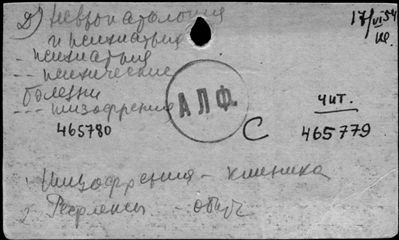 2) Невропатология
и психиатрия
- психиатрия
- - психические
болезни
- - - шизофрения
17/VI 54
АЛФ.
465780
С
чит.
465779
1. Шизофрения - клиника
2. Рефлексы -